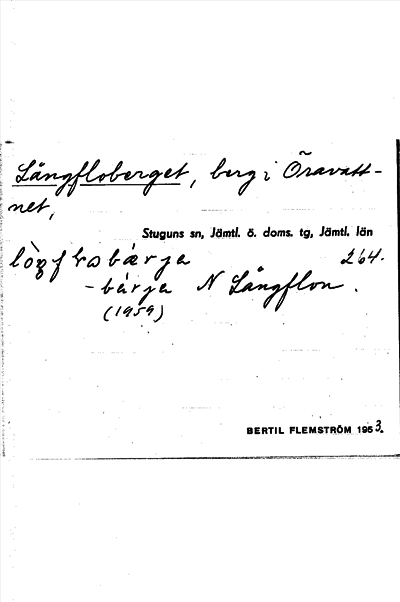 Långfloberget, berg i Öravatt-
net,
Stuguns sn, Jämtl. ö. doms. tg, Jämtl. län
264.
-bárja N Långflon.
(1959)
BERTIL FLEMSTRÖM 1953.